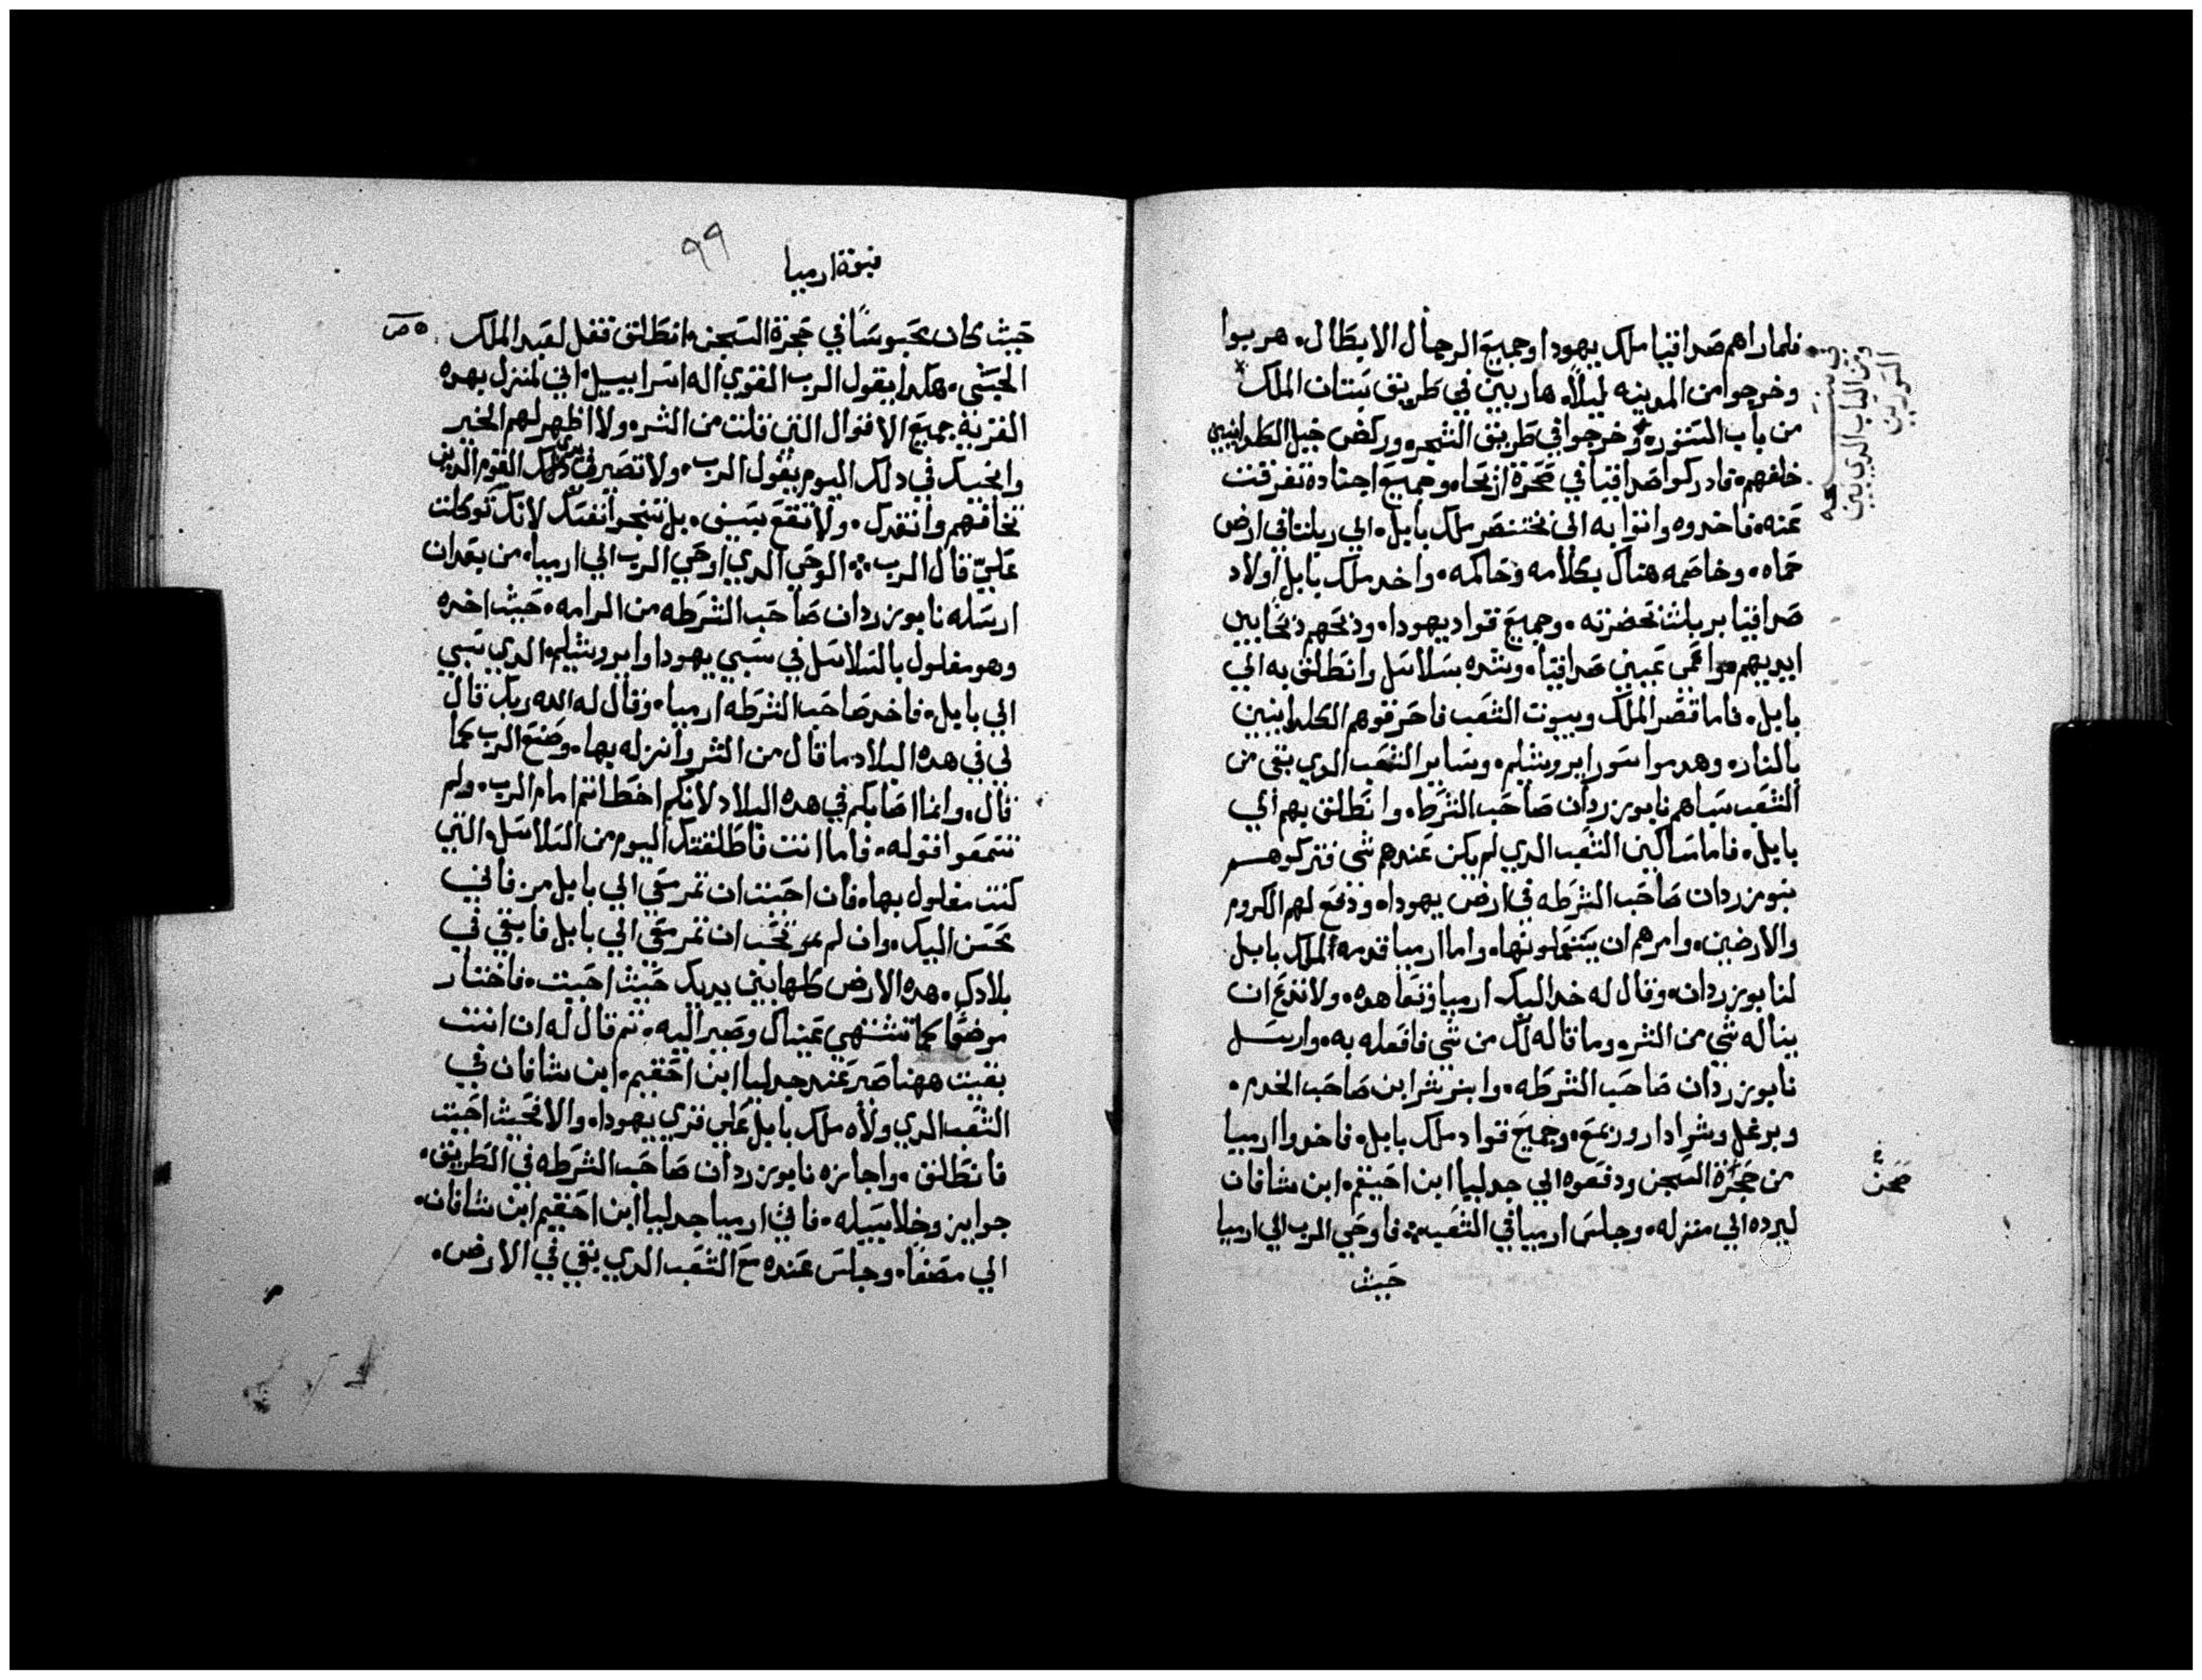 فلما راهم صداقيا ملك يهودا وجميع الرجال الابطال. هربوا
وخرجوا من المدينه ليلاً. هاربين في طريق بستان الملك
من باب السور. وخرجوا في طريق الشجر. وركض خيل الكلدانيين
خلفهم. فادركوا صداقيا في صحرة اريحا. وجميع اجناده تفرقت
عنه. فاخدوه واتوا به الى بختنصر ملك بابل. الي ربلتا في ارض
حماه. وخاصمه هناك بكلامه وحاكمه. واخد ملك بابل اولاد
صداقيا بربلث بحضرته. وجميع قواد يهودا. ودبحهم دبحًا بين
ايديهم. واعمى عينين صداقيا. وشده بسلاسل وانطلق به الي
بابل. فاما قصر الملك وبيوت الشعب فاحرقوهم الكلدانيين
بالنار. وهدموا سور ايروشليم. وساير الشعب الدي بقى من
الشعب سباهم نابوزردان صاحب الشرط. وانطلق بهم الي
بابل. فاما ساكين الشعب الدي لم يكن عندهم شى فتركوهم
نبوزردان صاحب الشرطه في ارض يهودا. ودفع لهم الكروم
والارضين. وامرهم ان يستغلونها. واما ارميا قدمه الملك بابل
لنابوزردان. وقال له خد اليك ارميا وتعاهده. ولا تدع ان
يناله شي من الشر. وما قاله لك من شي فافعله به. وارسل
نابوزردان صاحب الشرطه. وابنربشر ابن صاحب الخدم.
وبرغل وشرادار وربمع. وجميع قواد ملك بابل. فاخدوا ارميا
من حجرة السجن ودفعوه الي جدليا ابن احيقم. ابن شافان
ليرده الي منزله. وجلس ارميا في الشعب. فاوحي الرب الي ارميا
حيث
صحن
نبوة ارميا
٩٩
حيث كان محبوسًا في حجرة السجن. انطلق فقل لعبد الملك
الحبشى. هكدا يقول الرب القوي اله اسراييل. اني لمنزل بهده
القرية جميع الاقوال التي قلت من الشر. ولا اظهر لهم الخير
وانجيك في دلك اليوم يقول الرب. ولا تصير في يدي القوم الدين
تخافهم وانقدك. ولا تقع بسيف. بل تنجوا نفسك لانك توكلت
علىّ قال الرب. الوحي الدي اوحي الرب الي ارميا. من بعد ان
ارسله نابوزردان صاحب الشرطه من الرامه. حيث اخده
وهو مغلول بالسلاسل في سبي يهودا وايروشليم. الدي سبي
الي بابل. فاخد صاحب الشرطه ارميا. وقال له الله ربك قال
لي في هده البلاد ما قال من الشر وانزله بها. وصنع الرب كما
قال. وانما اصابكم في هده البلاد لانكم اخطاتم امام الرب. ولم
تسمعوا قوله. فاما انت فاطلقتك اليوم من السلاسل التي
كنت مغلول بها. فان احببت ان تمر معي الي بابل مر فاني
محسن اليك. وان لم تحب ان تمر معي الي بابل فابقي في
بلادك. هده الارض كلها بين يديك حيث احببت. فاختار
موضعًا كما تشتهي عيناك وصير اليه. ثم قال له ان انت
بقيت ههنا صر عند جدليا ابن احقيم. ابن شافان في
الشعب الدي ولاه ملك بابل على قري يهودا. والا فحيث احببت
فانطلق. واجازه نابوزردان صاحب الشرطه في الطريق.
جوايز وخلا سبيله. فاتى ارميا جدليا ابن احقيم ابن شافان.
الي مصفا. وجلس عنده مع الشعب الدي بقي في الارض.